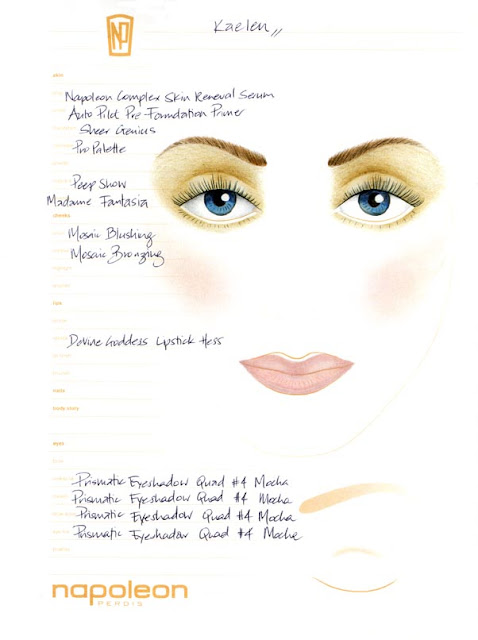 NP
Kaelen,,
skin
Napoleon Complex Skin Renewal Serum
Auto Pilot Pre Foundation Primer
Sheer Genius
Pro Palette
Peep Show
Madame Fantasia
cheeks
Mosaic Blushing
Mosaic Bronzing
lips
Devine Goddess Lipstick Hess
nails
body/extra
eyes
Prismatic Eyeshadow Quad #4 Mocha
Prismatic Eyeshadow Quad #4 Mocha
Prismatic Eyeshadow Quad #4 Mocha
Prismatic Eyeshadow Quad #4 Mocha
napoleon
PERDIS